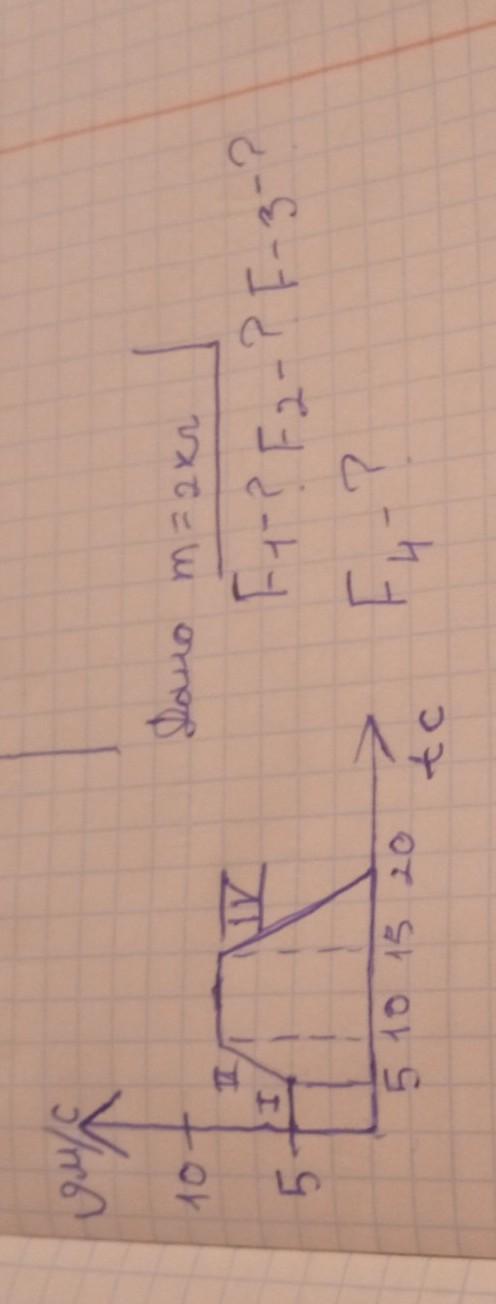 Дано m = 2 кг
F1-? F2-? F-3-?
F4-?
υ м/с
10
5
I
II
IV
5 10 15 20
t c